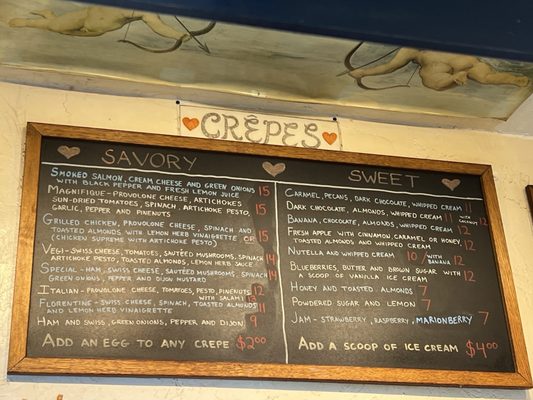 CRÊPES
SAVORY
SMOKED SALMON, CREAM CHEESE AND GREEN ONIONS 15
WITH BLACK PEPPER AND FRESH LEMON JUICE
MAGNIFIQUE - PROVOLONE CHEESE, ARTICHOKES
SUN-DRIED TOMATOES, SPINACH, ARTICHOKE PESTO, 15
GARLIC, PEPPER AND PINENUTS
GRILLED CHICKEN, PROVOLONE CHEESE, SPINACH AND
TOASTED ALMONDS WITH LEMON HERB VINAIGRETTE OR 15
(CHICKEN SUPREME WITH ARTICHOKE PESTO)
VEGI - SWISS CHEESE, TOMATOES, SAUTÉED MUSHROOMS, SPINACH
ARTICHOKE PESTO, TOASTED ALMONDS, LEMON HERB SAUCE 14
SPECIAL - HAM, SWISS CHEESE, SAUTÉED MUSHROOMS, SPINACH 14
GREEN ONIONS, PEPPER AND DIJON MUSTARD
ITALIAN - PROVOLONE CHEESE, TOMATOES, PESTO, PINENUTS 12
WITH SALAMI 13
FLORENTINE - SWISS CHEESE, SPINACH, TOASTED ALMONDS 11
AND LEMON HERB VINAIGRETTE
HAM AND SWISS, GREEN ONIONS, PEPPER AND DIJON 9
ADD AN EGG TO ANY CREPE $2.00
SWEET
CARAMEL, PECANS, DARK CHOCOLATE, WHIPPED CREAM 11
DARK CHOCOLATE, ALMONDS, WHIPPED CREAM 11 WITH COCONUT 12
BANANA, CHOCOLATE, ALMONDS, WHIPPED CREAM 12
FRESH APPLE WITH CINNAMON, CARAMEL OR HONEY, 12
TOASTED ALMONDS AND WHIPPED CREAM
NUTELLA AND WHIPPED CREAM 10 / WITH BANANA 12
BLUEBERRIES, BUTTER AND BROWN SUGAR WITH 12
A SCOOP OF VANILLA ICE CREAM
HONEY AND TOASTED ALMONDS 7
POWDERED SUGAR AND LEMON 7
JAM - STRAWBERRY, RASPBERRY, MARIONBERRY 7
ADD A SCOOP OF ICE CREAM $4.00